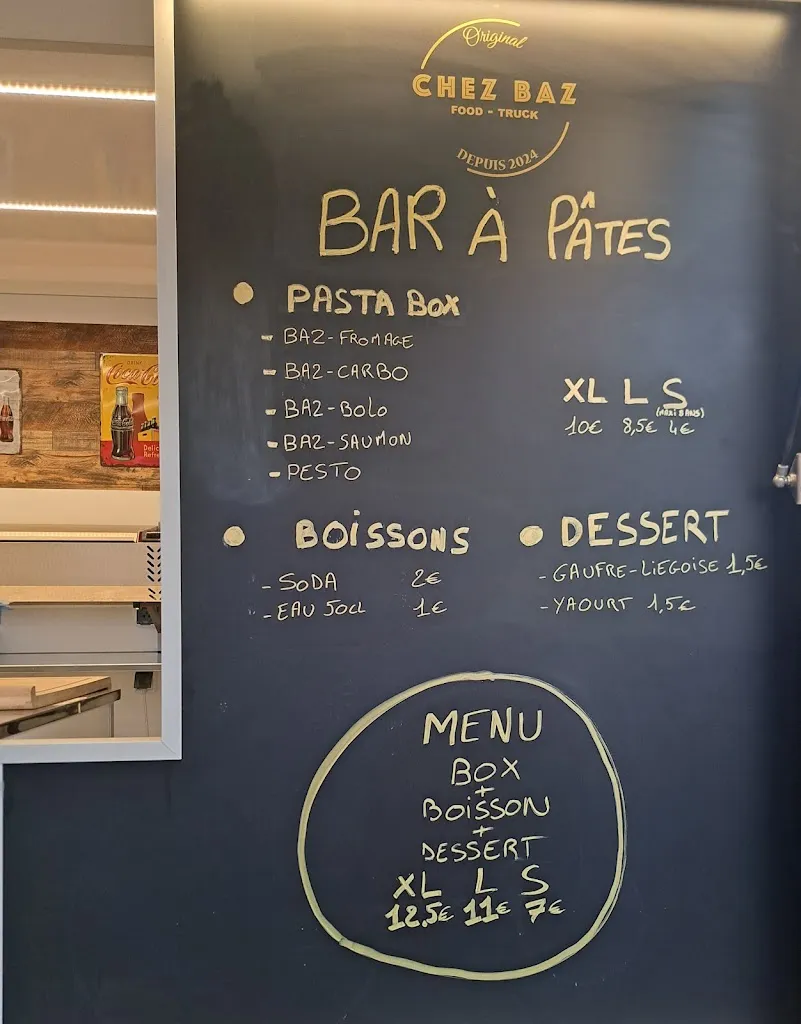 Original
CHEZ BAZ
FOOD - TRUCK
DEPUIS 2024
BAR À PÂTES
PASTA BOX
- BAZ-FROMAGE
- BAZ-CARBO
- BAZ-BOLO
- BAZ-SAUMON
- PESTO
XL L S
10€ 8,5€ 4€
BOISSONS
- SODA 2€
- EAU 50CL 1€
DESSERT
- GAUFRE-LIEGOISE 1,5€
- YAOURT 1,5€
MENU
BOX
+
BOISSON
+
DESSERT
XL L S
12,5€ 11€ 7€
Coca-Cola